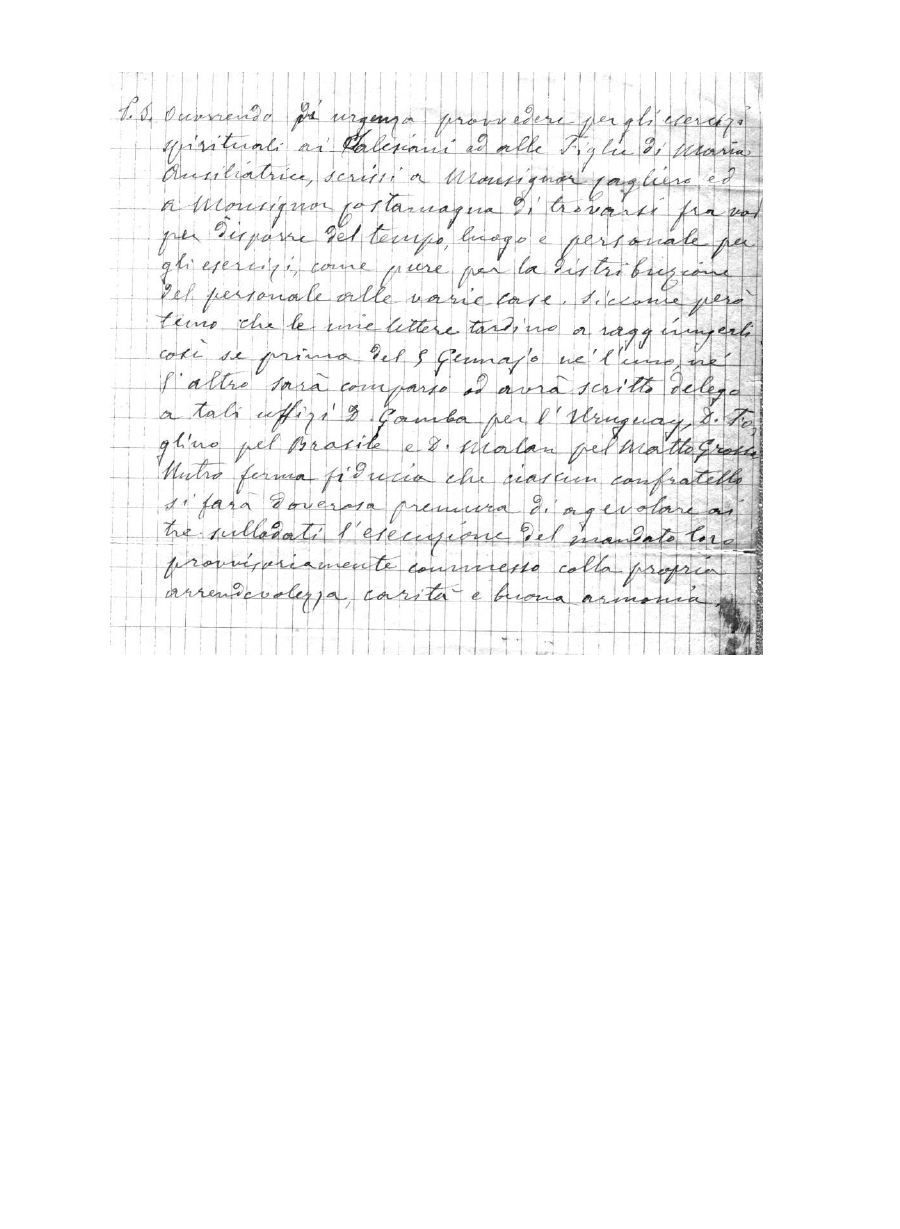 P.S. Ocorrendo di urgenza provvedere per gli esercizi
spirituali ai Salesiani ed alle Figlie di Maria
Ausiliatrice, scrissi a Monsignor Cagliero ed
a Monsignor Costamagna di trovarsi fra voi
per disporre del tempo, luogo e personale per
gli esercizi, come pure per la distribuzione
del personale alle varie case. Siccome però
temo che le mie lettere tardino a raggiungerli
così se prima del 5 Gennajo nè l'uno, nè
l'altro sarà comparso od avrà scritto delego
a tali uffizi D. Gamba per l'Uruguay, D. Fo-
glino pel Brasile e D. Malan pel Matto Grosso
Nutro ferma fiducia che ciascun confratello
si farà doverosa premura di agevolare ai
tre sullodati l'esecuzione del mandato loro
provvisoriamente commesso colla propria
arrendevolezza, carità e buona armonia.